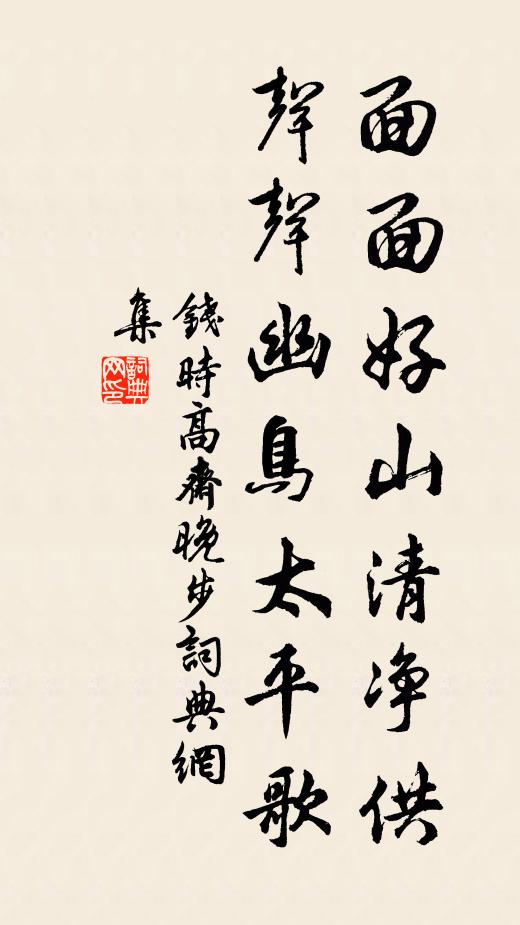 面面好山清净供
聲聲幽鳥太平歌
錢時高齋晚步詞典網
集
詞典网印